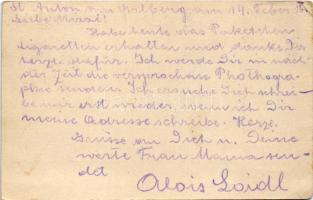 St. Anton am Arlberg am 14. Feber 16.
Liebe Mizzi!
Habe heute das Paketchen
Zigaretten erhalten und danke Dir
herzl. dafür. Ich werde Dir in näch-
ster Zeit die versprochene Photogra-
phie senden. Ich ersuche Dich schrei-
be mir erst wieder, wenn ich Dir
meine Adresse schreibe. Herzl.
Grüsse an Dich u. Deine
werte Frau Mama sen-
det
Alois Loidl